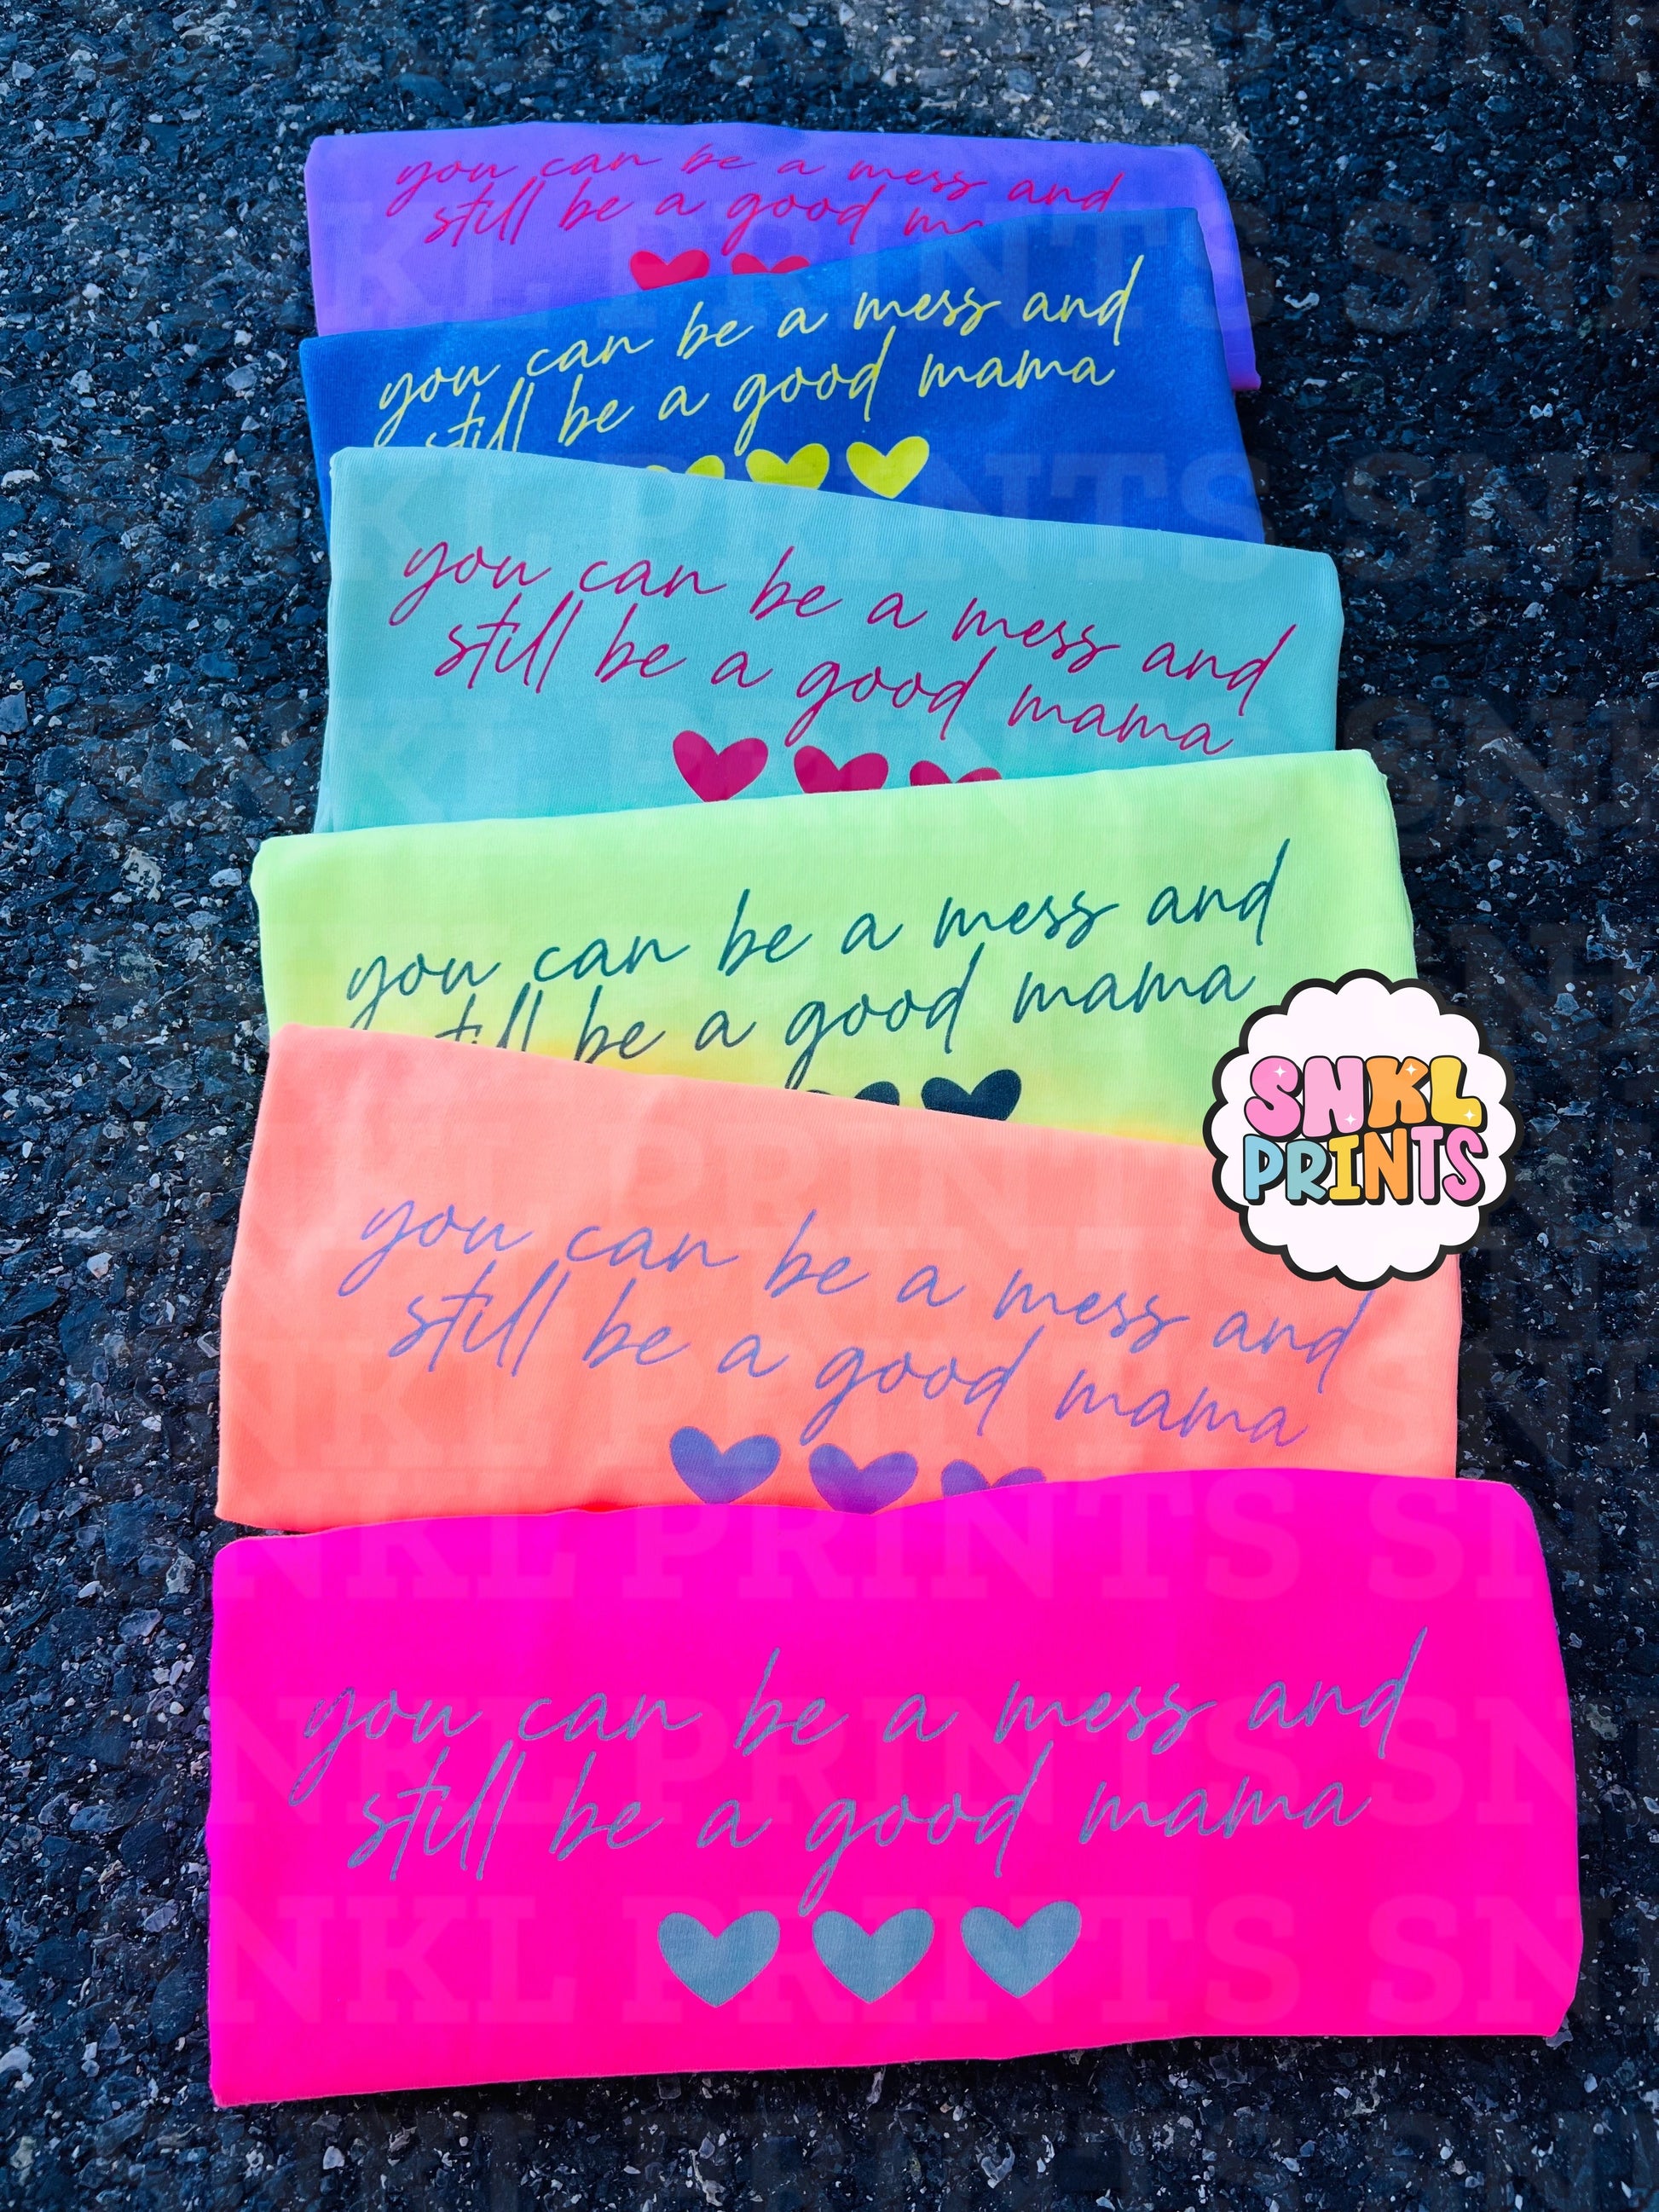 you can be a mess and
still be a good m
you can be a mess and
still be a good mama
you can be a mess and
still be a good mama
you can be a mess and
still be a good mama
SNKL
PRINTS
you can be a mess and
still be a good mama
you can be a mess and
still be a good mama
SNKL PRINTS SN